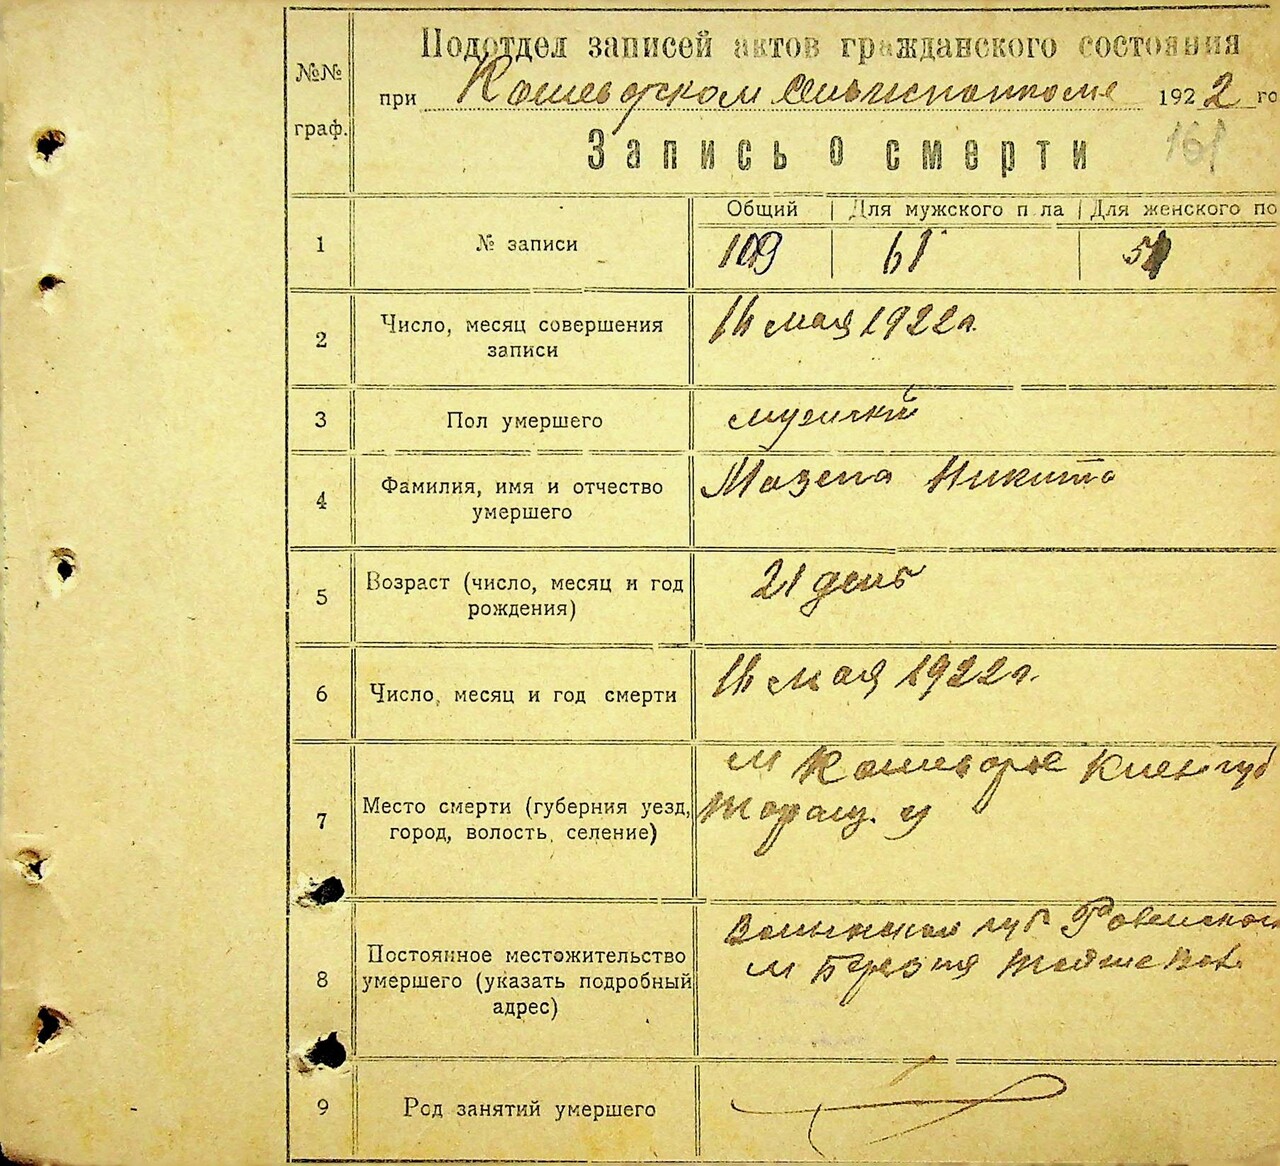 Подотдел записей актов гражданского состояния
№№ граф.
при Кошеватском сельисполкоме 1922 го
161
Запись о смерти
Общий | Для мужского п ла | Для женского по
1 № записи 109 61
2 Число, месяц совершения 16 мая 1922 г.
записи
3 Пол умершего мужской
4 Фамилия, имя и отчество Мазепа Никита
умершего
5 Возраст (число, месяц и год 21 день
рождения)
6 Число, месяц и год смерти 16 мая 1922 г.
м Киев губ
7 Место смерти (губерния уезд, Таращ. у
город, волость, селение)
Волынской губ Ровенского
8 Постоянное местожительство м
умершего (указать подробный
адрес)
9 Род занятий умершего